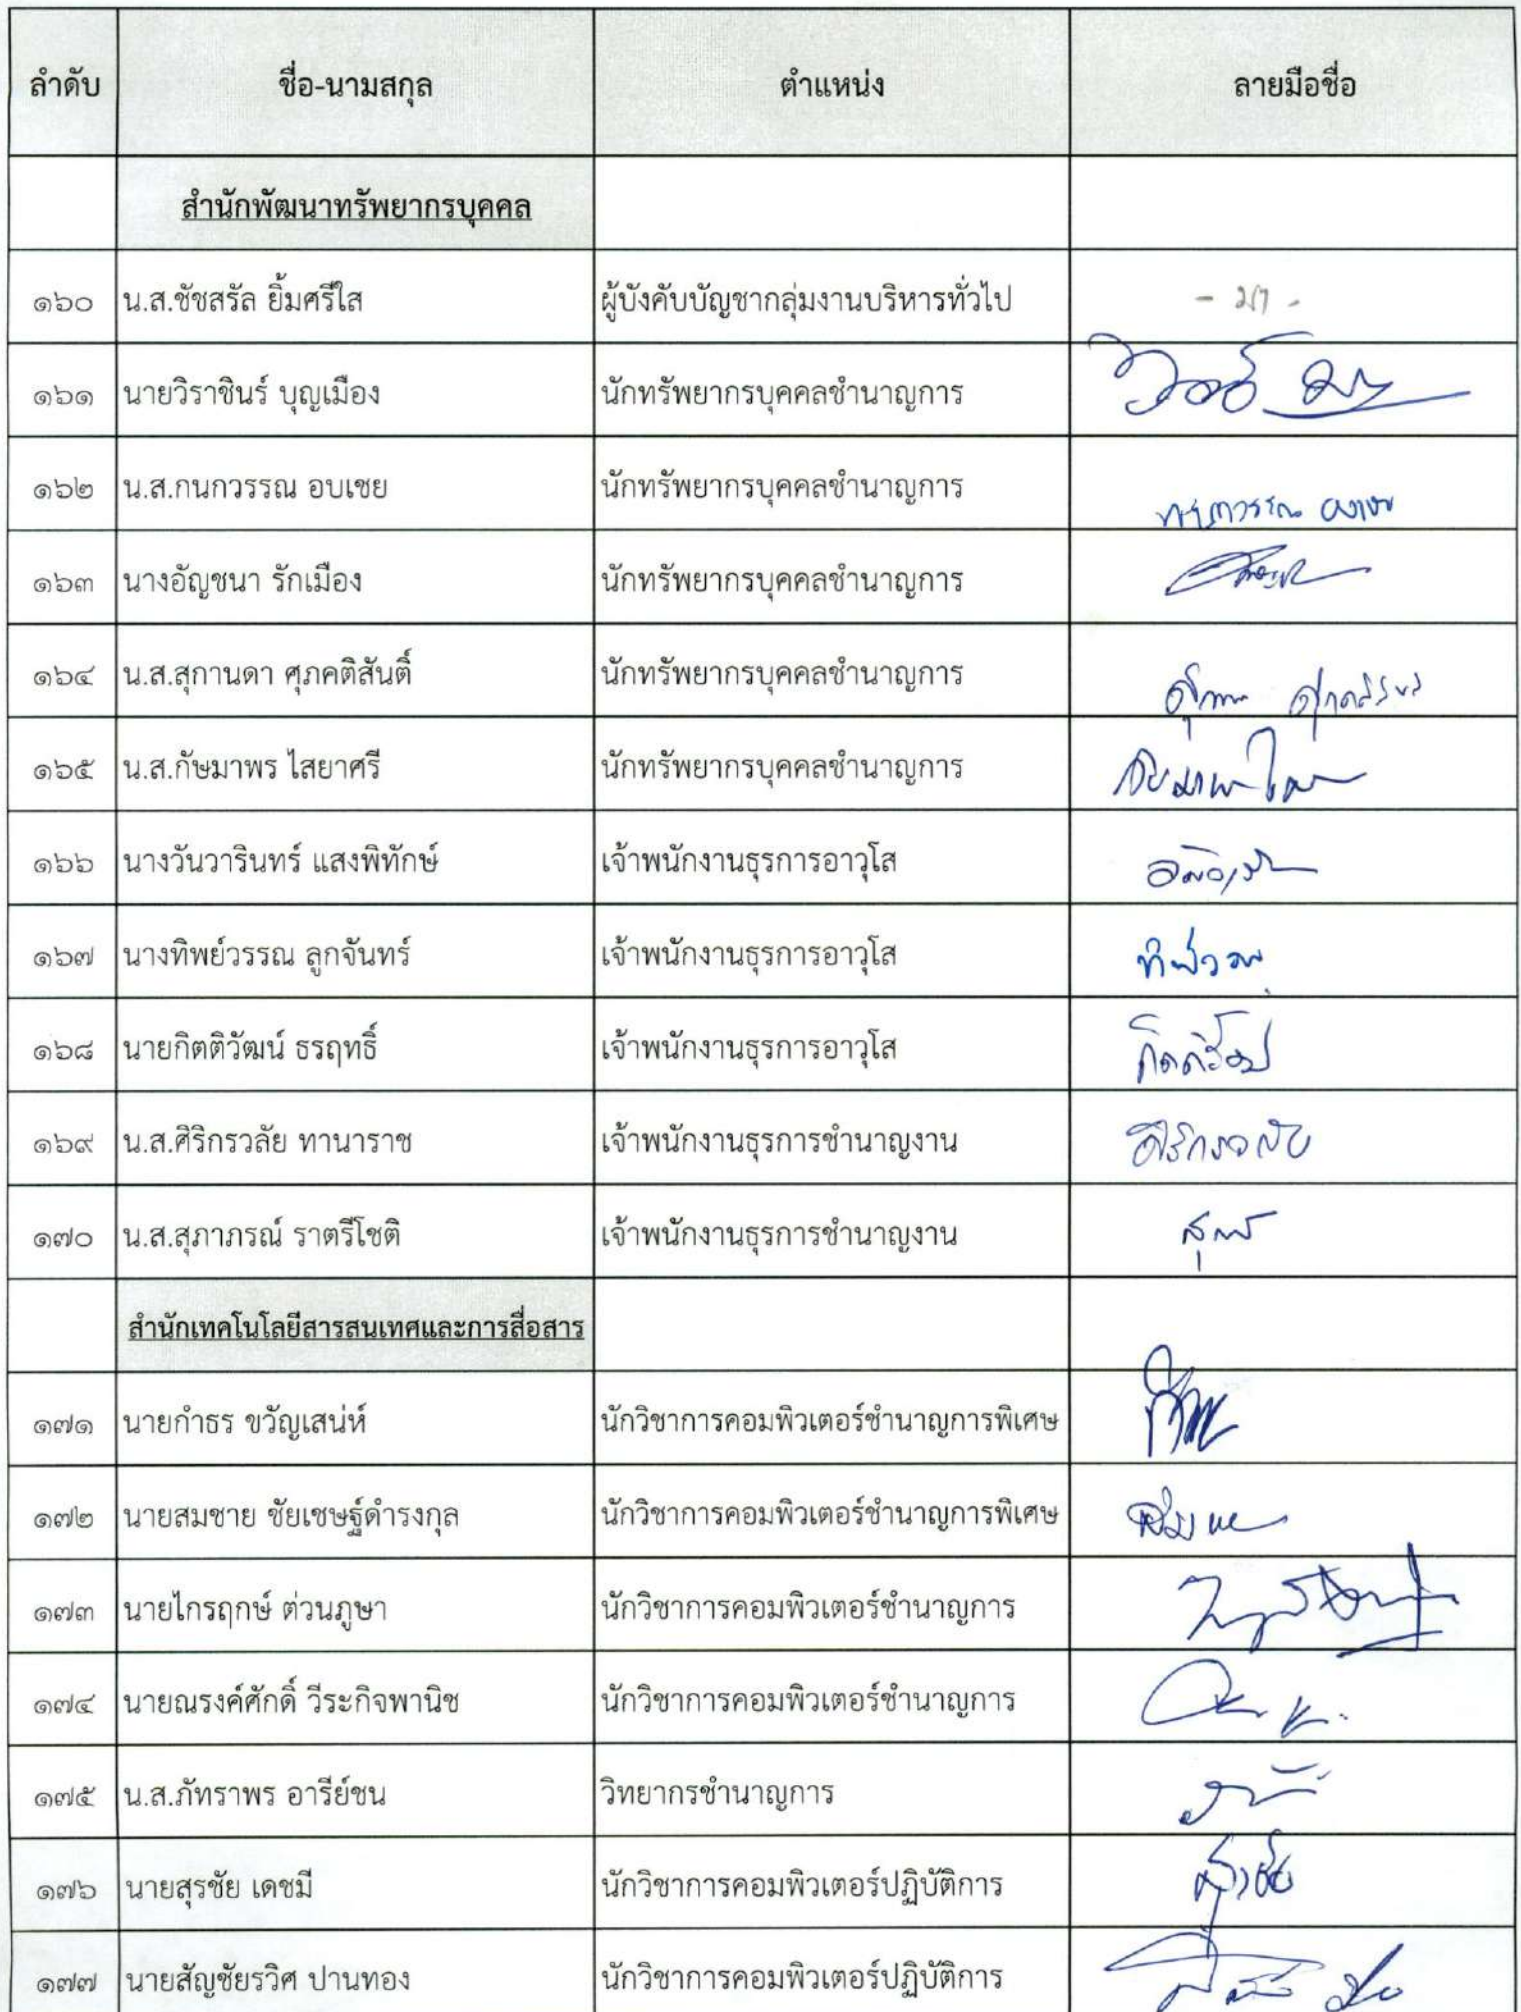 ลำดับ ชื่อ-นามสกุล ตำแหน่ง ลายมือชื่อ
สำนักพัฒนาทรัพยากรบุคคล
๑๖๐ น.ส.ชัชสรัล ยิ้มศรีใส ผู้บังคับบัญชากลุ่มงานบริหารทั่วไป
๑๖๑ นายวิราชินร์ บุญเมือง นักทรัพยากรบุคคลชำนาญการ
๑๖๒ น.ส.กนกวรรณ อบเชย นักทรัพยากรบุคคลชำนาญการ กนกวรรณ อบเชย
๑๖๓ นางอัญชนา รักเมือง นักทรัพยากรบุคคลชำนาญการ
๑๖๔ น.ส.สุกานดา ศุภคติสันติ์ นักทรัพยากรบุคคลชำนาญการ
๑๖๕ น.ส.กัษมาพร ไสยาศรี นักทรัพยากรบุคคลชำนาญการ
๑๖๖ นางวันวารินทร์ แสงพิทักษ์ เจ้าพนักงานธุรการอาวุโส
๑๖๗ นางทิพย์วรรณ ลูกจันทร์ เจ้าพนักงานธุรการอาวุโส
๑๖๘ นายกิตติวัฒน์ ธรฤทธิ์ เจ้าพนักงานธุรการอาวุโส
๑๖๙ น.ส.ศิริกรวลัย ทานาราช เจ้าพนักงานธุรการชำนาญงาน ศิริกรวลัย
๑๗๐ น.ส.สุภาภรณ์ ราตรีโชติ เจ้าพนักงานธุรการชำนาญงาน
สำนักเทคโนโลยีสารสนเทศและการสื่อสาร
๑๗๑ นายกำธร ขวัญเสน่ห์ นักวิชาการคอมพิวเตอร์ชำนาญการพิเศษ
๑๗๒ นายสมชาย ชัยเชษฐ์ดำรงกุล นักวิชาการคอมพิวเตอร์ชำนาญการพิเศษ
๑๗๓ นายไกรฤกษ์ ต่วนภูษา นักวิชาการคอมพิวเตอร์ชำนาญการ
๑๗๔ นายณรงค์ศักดิ์ วีระกิจพานิช นักวิชาการคอมพิวเตอร์ชำนาญการ
๑๗๕ น.ส.ภัทราพร อารีย์ชน วิทยากรชำนาญการ
๑๗๖ นายสุรชัย เดชมี นักวิชาการคอมพิวเตอร์ปฏิบัติการ สุรชัย
๑๗๗ นายสัญชัยรวิศ ปานทอง นักวิชาการคอมพิวเตอร์ปฏิบัติการ